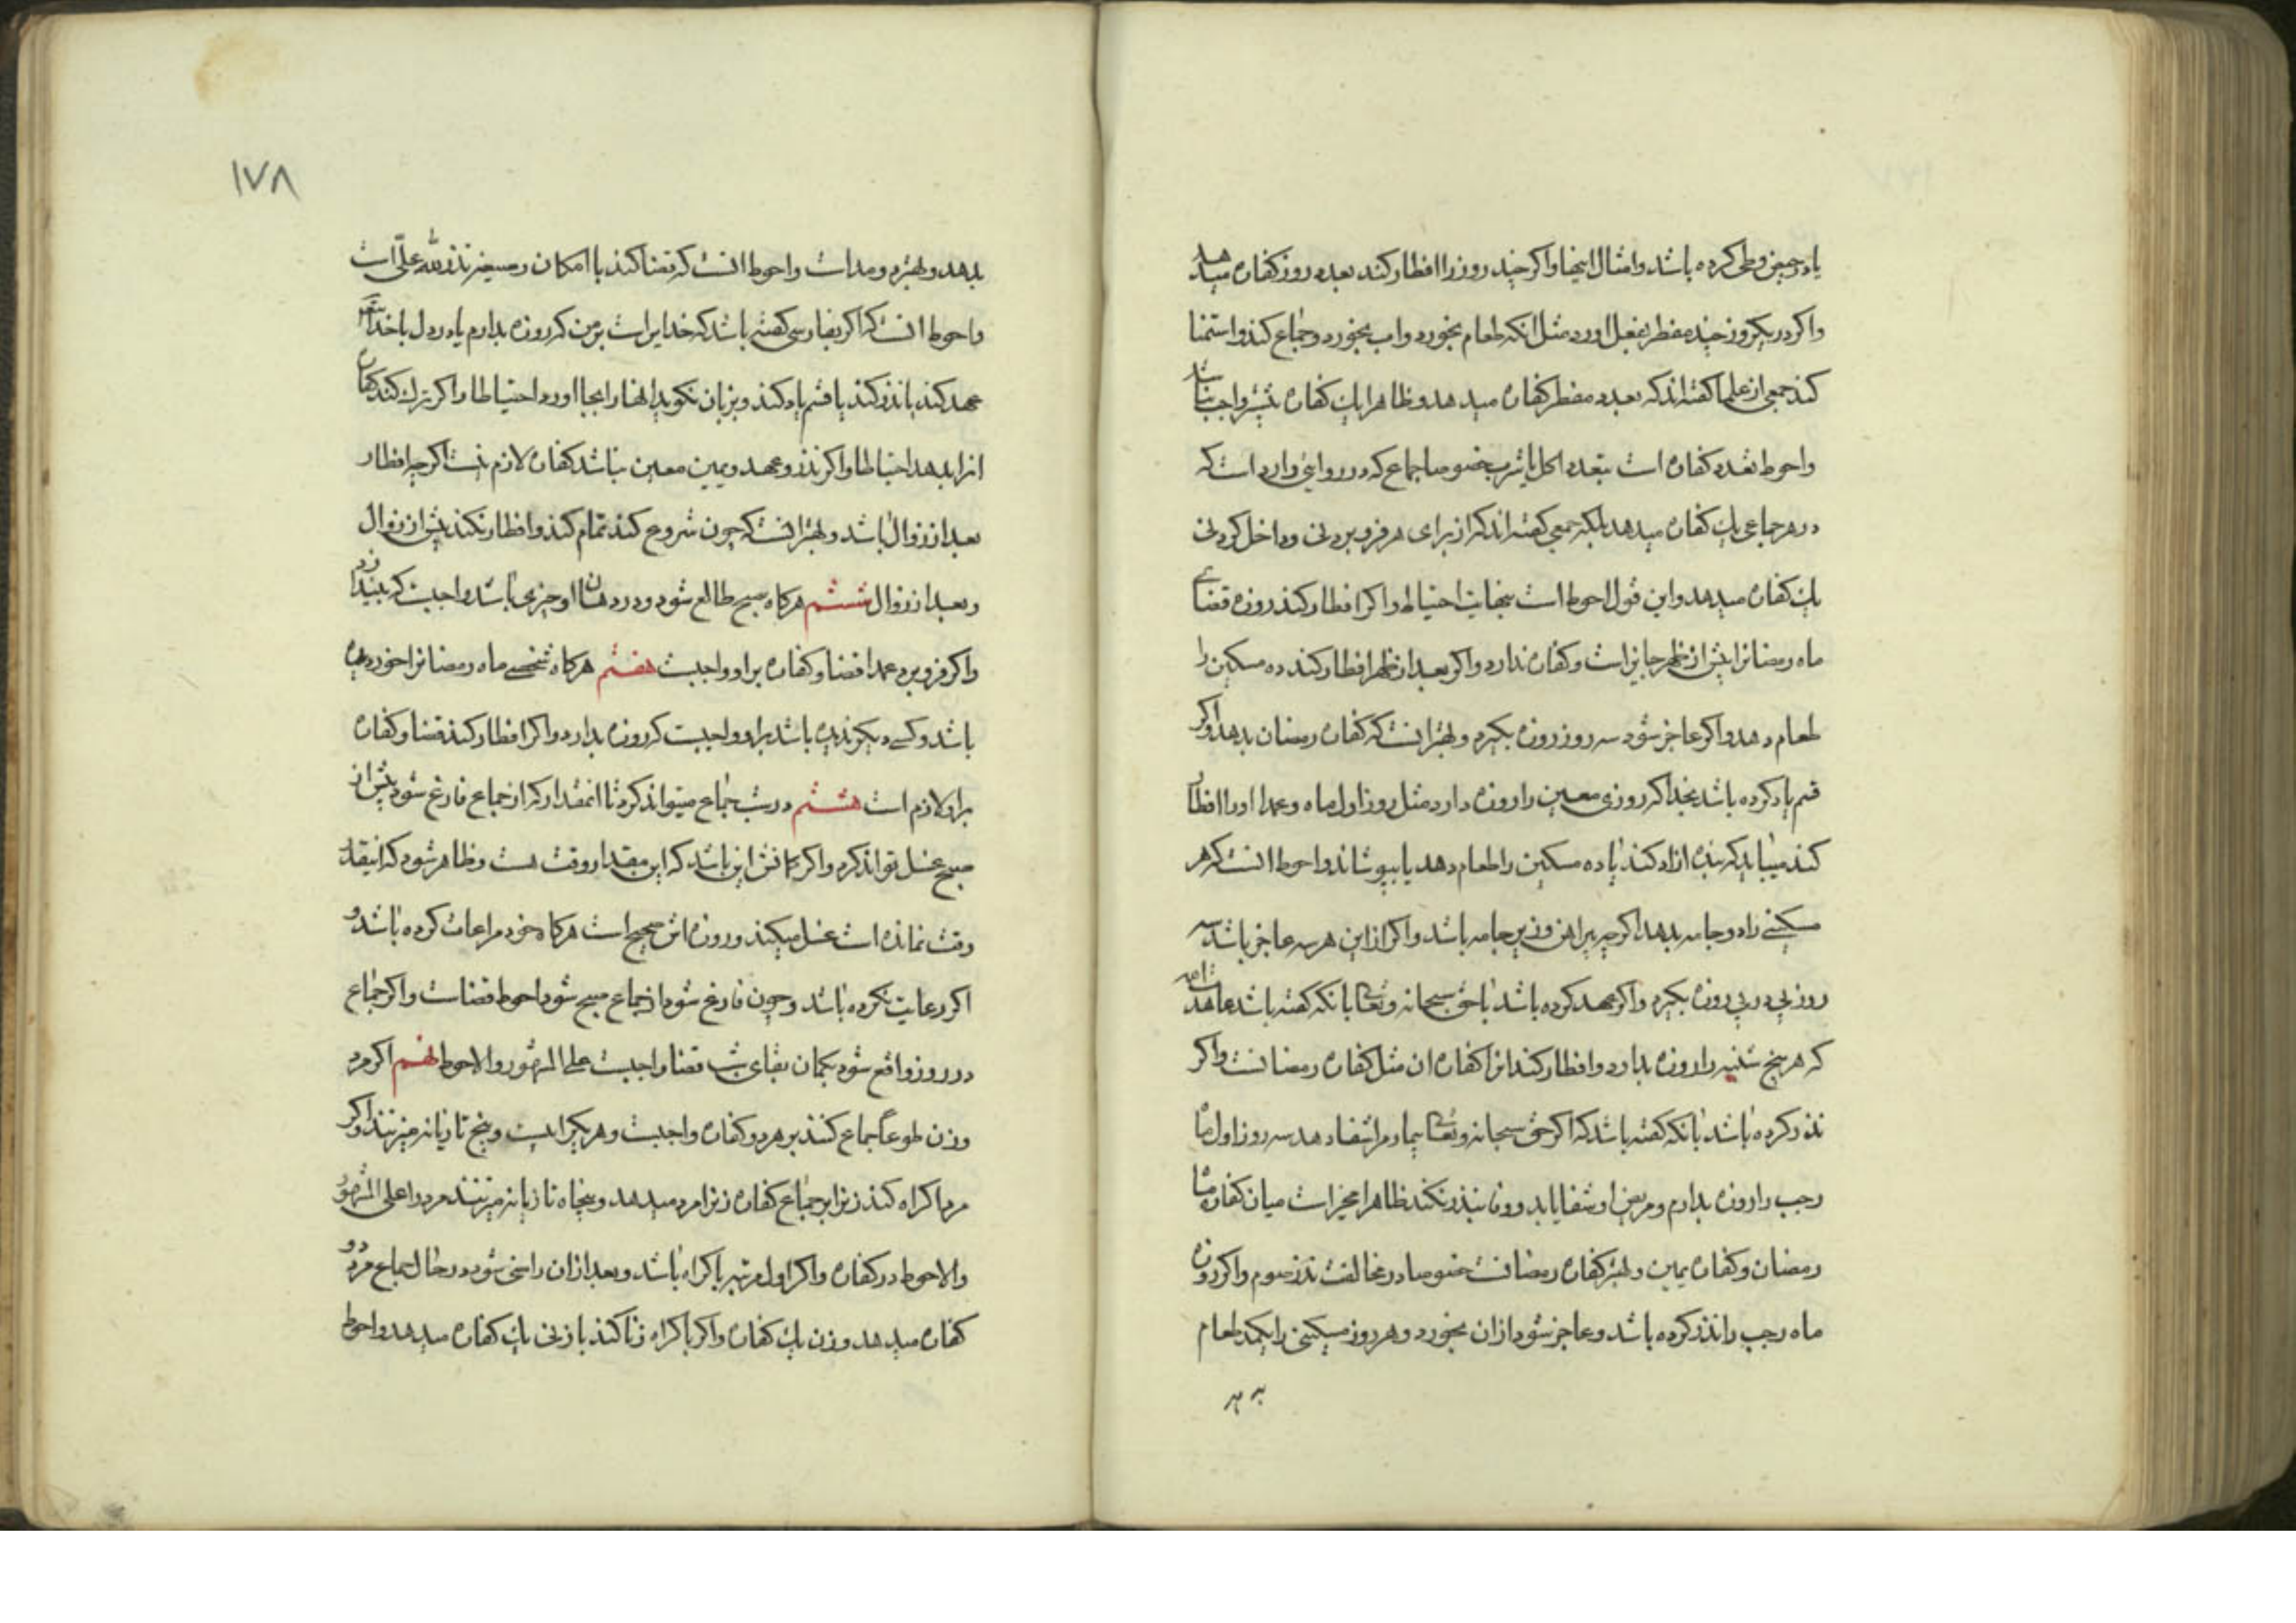 یا در حیض وطی کرده باشد و امثال اینها و اکر چند روز را افطار کند بعدد روز کفاره میدهد
و اکر در یکروز چند مفطر بفعل اورد مثل انکه طعام بخورد و اب بخورد و جماع کند و استمنا
کند جمعی از علما کفته اند که بعدد مفطر کفاره میدهد و ظاهرا یک کفاره بیشتر واجب نباشد
و احوط تعدد کفاره است بتعدد اکل یا شرب خصوصا جماع که در روایتی وارد است که
در هر جماعی یک کفاره میدهد بلکه جمعی کفته اند که از برای هر فرو بردنی و داخل کردنی
یک کفاره میدهد و این قول احوط است بغایت احتیاط و اکر افطار کند روزه قضای
ماه رمضانرا پیش از ظهر جایز است و کفاره ندارد و اکر بعد از ظهر افطار کند ده مسکین را
طعام دهد و اکر عاجز شود سه روز روزه بکیرد و بهتر انست که کفاره رمضان بدهد و اکر
قسم یاد کرده باشد بخدا که روزی معین را روزه دارد مثل روز اول ماه و عمدا او را افطار
کند میباید که بنده ازاد کند یا ده مسکین را طعام دهد یا بپوشاند و احوط انست که هر
مسکینی را دو جامه بدهد اکر چه پیراهن و زیر جامه باشد و اکر از این هر سه عاجز باشد سه
روز پی در پی روزه بکیرد و اکر عهد کرده باشد با حق سبحانه و تعالی بانکه کفته باشد عاهدت الله
که هر پنج شنبه را روزه بدارد و افطار کند انرا کفاره ان مثل کفاره رمضانست و اکر
نذر کرده باشد بانکه کفته باشد که اکر حق سبحانه و تعالی بیمار مرا شفا دهد سه روز اول ماه
رجب را روزه بدارم و مریض او شفا یابد و وفا بنذر نکند ظاهرا مخیر است میان کفاره ماه
رمضان و کفاره یمین و بهتر کفاره رمضانست خصوصا در مخالفت نذر صوم و اکر روزه
ماه رجب را نذر کرده باشد و عاجز شود از ان بخورد و هر روز مسکینی را یکمد طعام
بدهد
١٧٨
بدهد و بهتر دو مد است و احوط انست که قضا کند با امکان و صیغه نذر لله علی است
و احوط انست که اکر بفارسی کفته باشد که خدایراست بر من که روزه بدارم یا در دل با خدا
عهد کند یا نذر کند یا قسم یاد کند و بزبان نکوید انها را بجا اورد احتیاطا و اکر ترک کند کفاره
انرا بدهد احتیاطا و اکر نذر و عهد و یمین معین نباشد کفاره لازم نیست اکر چه افطار
بعد از زوال باشد و بهتر انست که چون شروع کند تمام کند و افطار نکند پیش از زوال
و بعد از زوال ششم هرکاه صبح طالع شود و در دهان او چیزی باشد واجبست که بیندازد
و اکر فرو برد عمدا قضا و کفاره بر او واجبست هفتم هرکاه شخصی ماه رمضانرا خود دیده
باشد و کسی دیکر ندیده باشد بر او واجبست که روزه بدارد و اکر افطار کند قضا و کفاره
بر او لازم است هشتم در شب جماع میتواند کرد تا انمقدار که از جماع فارغ شود پیش از
صبح غسل تواند کرد و اکر کمانش این باشد که این مقدار وقت هست و ظاهر شود که اینقدر
وقت نمانده است غسل میکند و روزه اش صحیح است هرکاه خود مراعات کرده باشد و
اکر رعایت نکرده باشد و چون فارغ شود از جماع صبح شود احوط قضاست و اکر جماع
در روز واقع شود بکمان بقای شب قضا واجبست علی المشهور والاحوط نهم اکر مرد
و زن طوعا جماع کنند بر هر دو کفاره واجبست و هر یک را بیست و پنج تازیانه میزنند و اکر
مرد اکراه کند زنرا بر جماع کفاره زنرا مرد میدهد و پنجاه تازیانه میزنند مرد را علی المشهور
والاحوط در کفاره و اکر اول مرتبه باکراه باشد و بعد از ان راضی شود در حال جماع مرد دو
کفاره میدهد و زن یک کفاره و اکر باکراه زنا کند با زنی یک کفاره میدهد و احوط